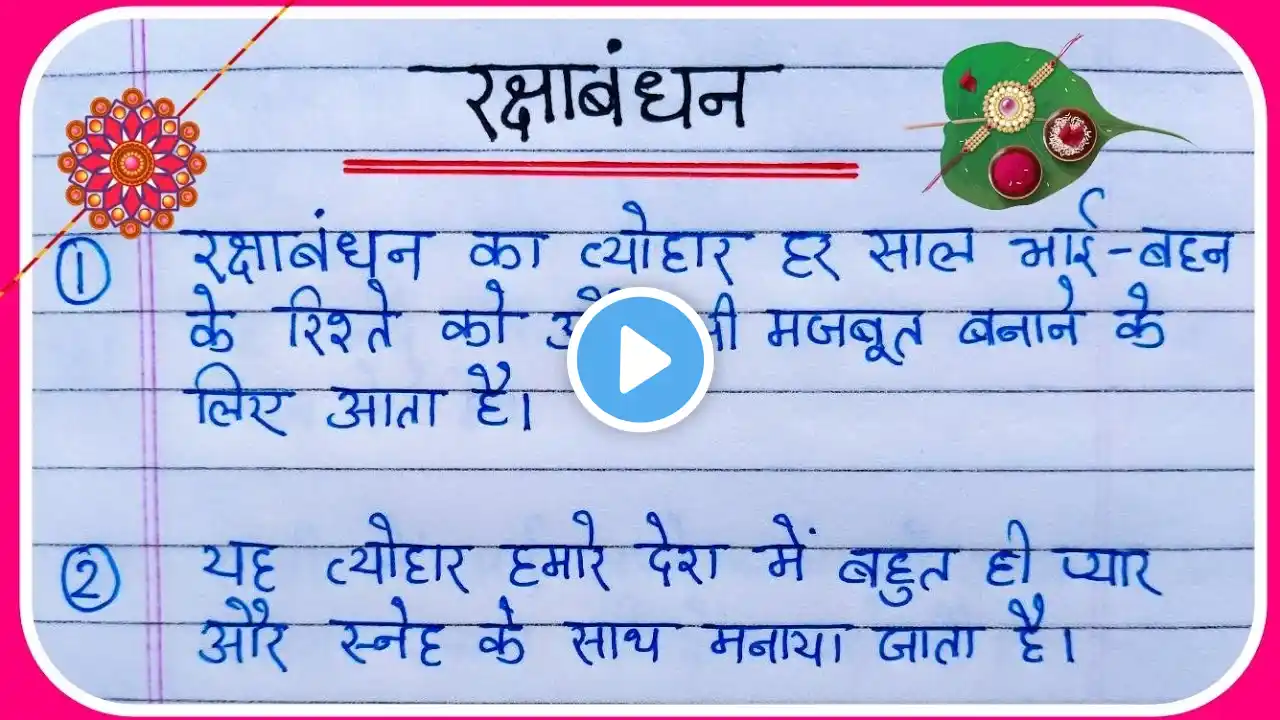 रक्षाबंधन
① रक्षाबंधन का त्योहार हर साल भाई-बहन
के रिश्ते को मजबूत बनाने के
लिए आता है।
② यह त्योहार हमारे देश में बहुत ही प्यार
और स्नेह के साथ मनाया जाता है।